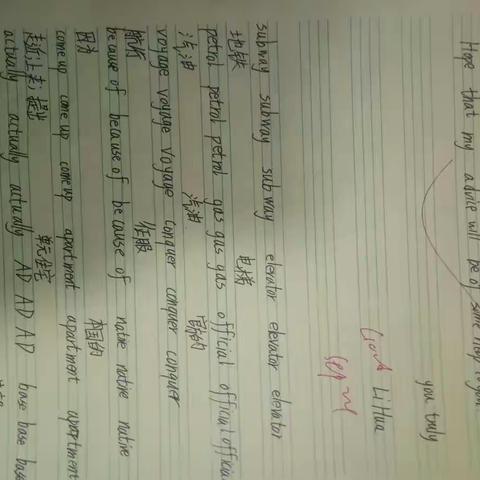 Hope that my advice will be of some help to you.
you truly
Li Hua
Good
subway subway subway elevator elevator elevator
地铁 电梯
petrol petrol petrol gas gas gas official official official
汽油 汽油 官方的
voyage voyage voyage conquer conquer conquer
航行 征服
because of because of because of native native native
因为 本国的
come up come up come up apartment apartment apartment
走近;上来;提出 单元住宅
actually actually actually AD AD AD base base base